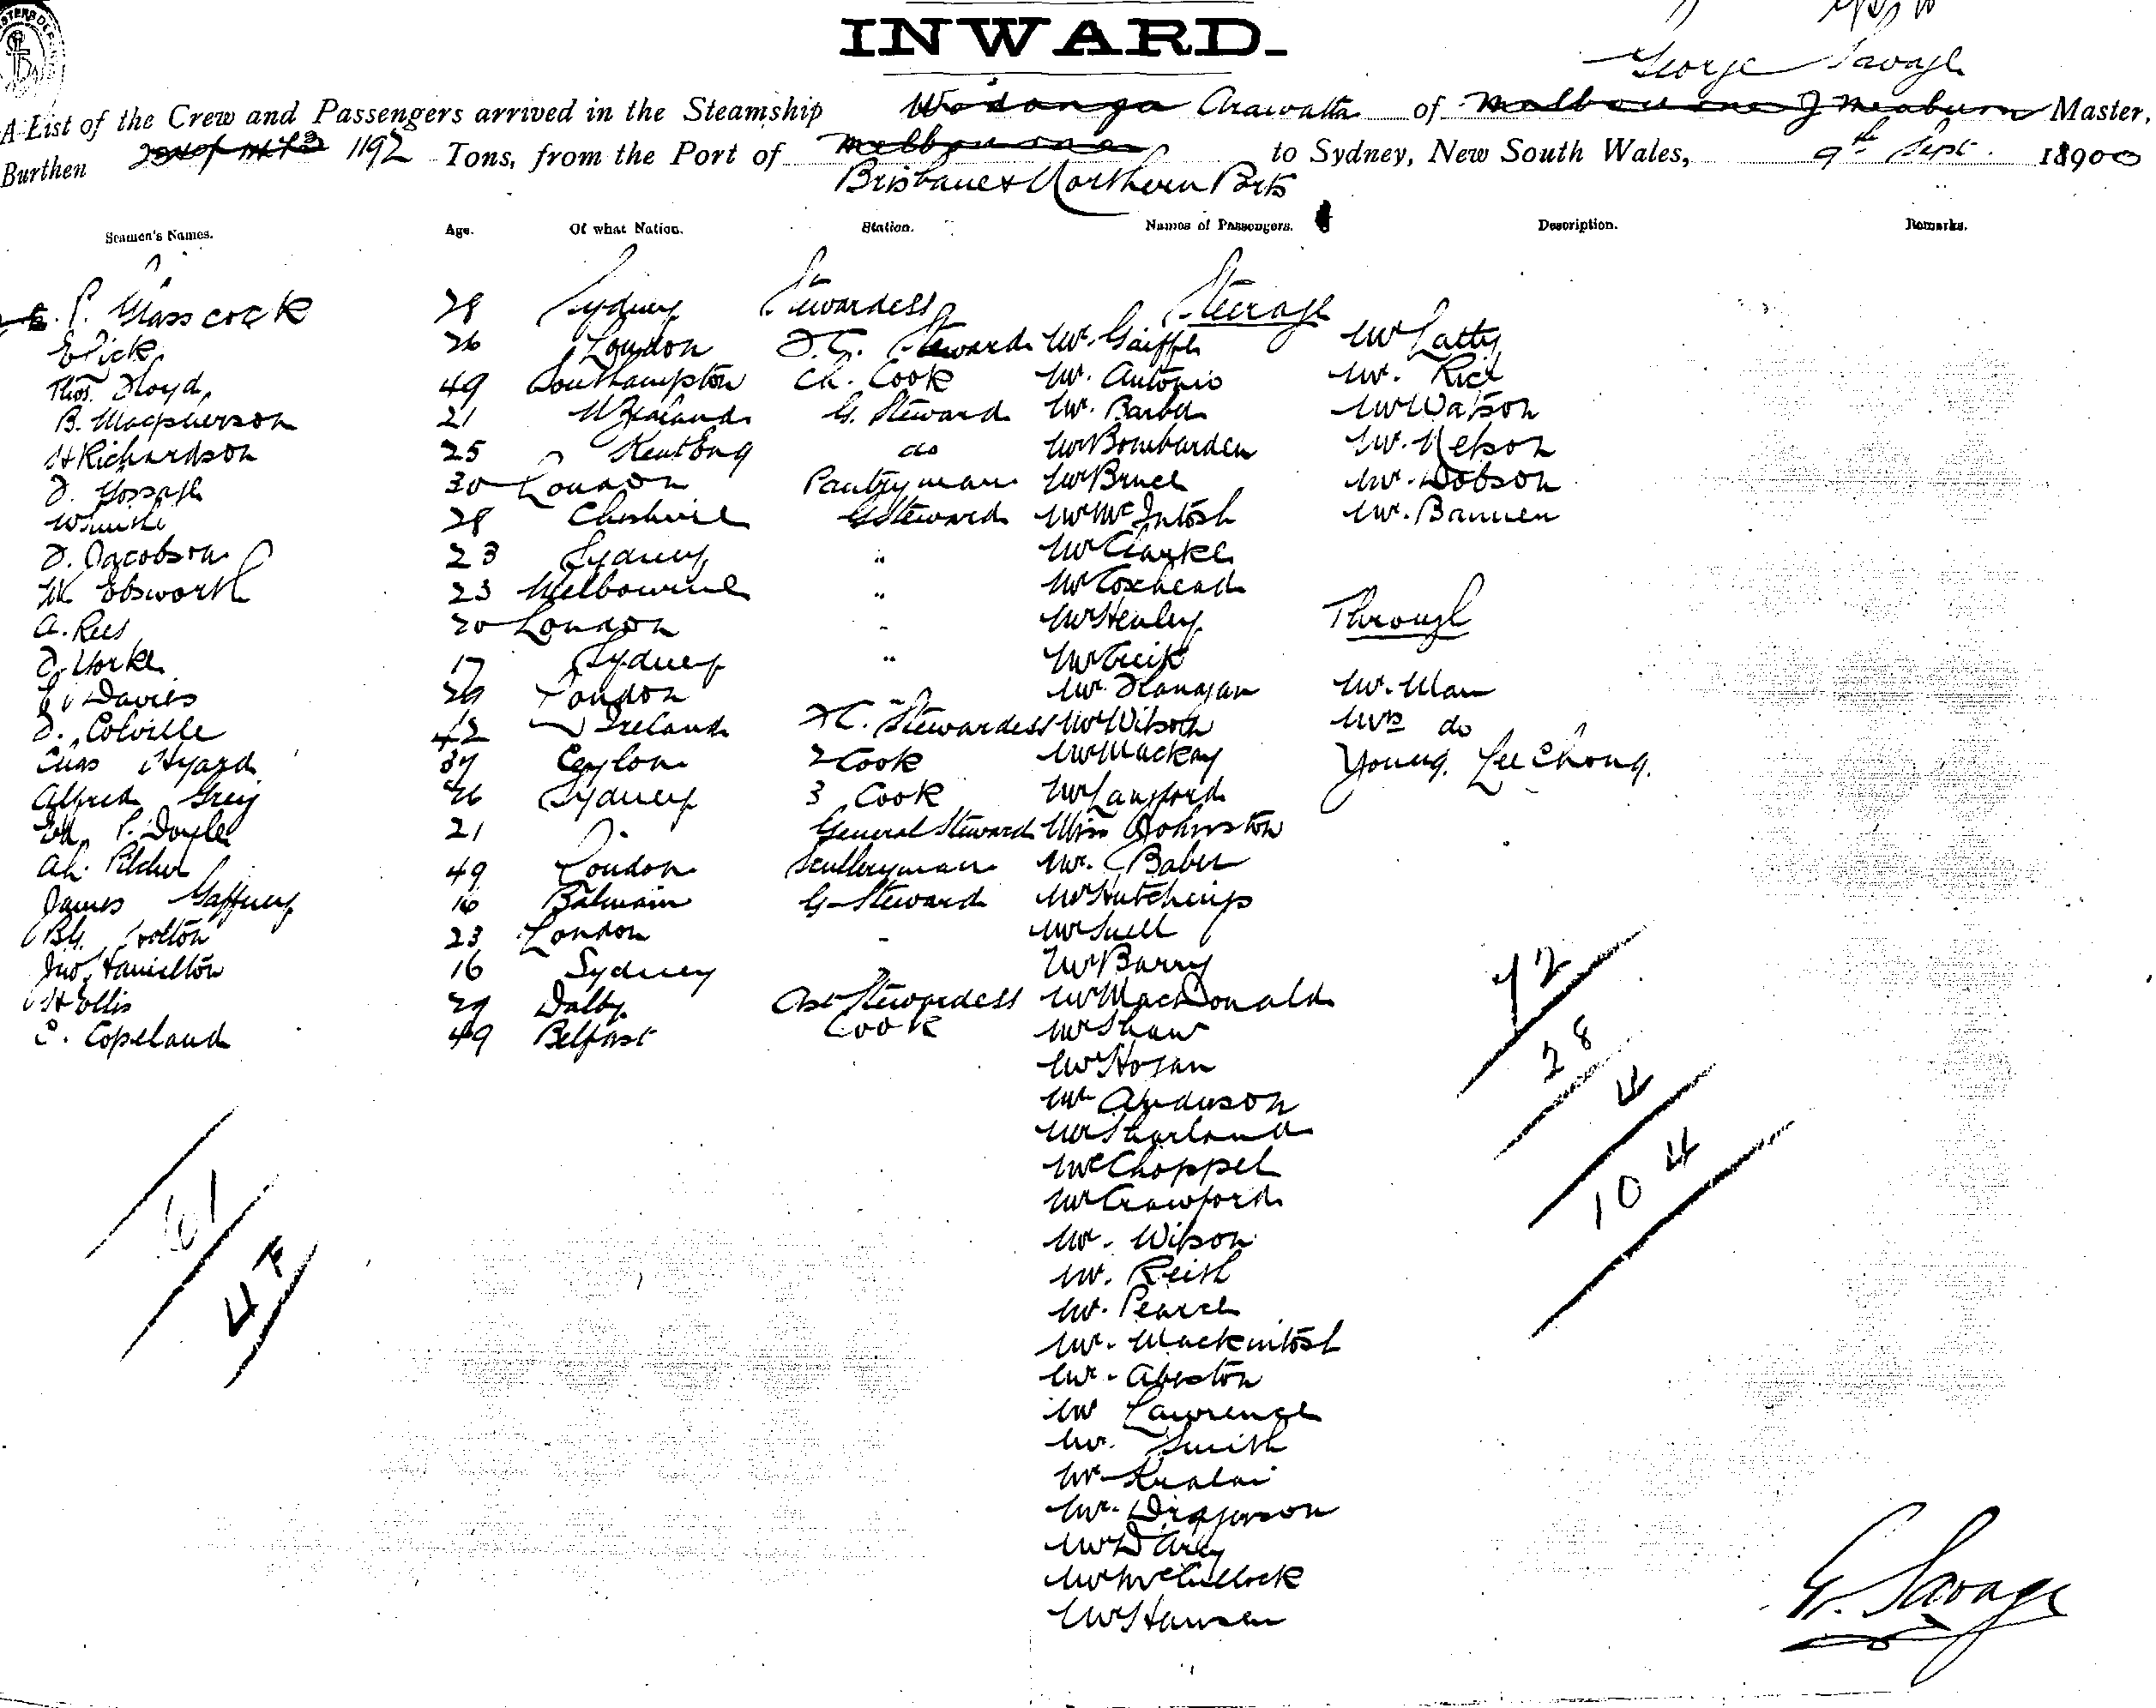 INWARD.
George Savage
A List of the Crew and Passengers arrived in the Steamship Wodonga Arawatta of Melbourne J Meaburn Master,
Burthen 1192 Tons, from the Port of Melbourne to Sydney, New South Wales, 9th Sept. 18900
Brisbane & Northern Ports
Seamen's Names. Age. Of what Nation. Station. Names of Passengers. Description. Remarks.
P. Glasscock 28 Sydney Stewardess Steerage
E Pick 26 London F.C. Steward Mr. Mr Latty
Thos. Floyd 49 Southampton Ch. Cook Mr. Antonio Mr. Rice
B. Macpherson 21 N Zealand G. Steward Mr. Barber Mr Watson
H Richardson 25 Kent Eng do Mr Bombarden Mr. Nelson
D. 30 London Pantryman Mr Bruce Mr. Dobson
W Smith 28 Cheshire G Steward Mr McIntosh Mr. Bannen
D. Jacobson 23 Sydney " Mr Clarke
W. Ebsworth 23 Melbourne " Mr Coxhead
A. Rees 20 London " Mr Henley Through
D. Yorke 17 Sydney " Mr
Davies London " Mr. Flanagan Mr. Man
D. Colville 42 Ireland F C. Stewardess Mr Wilson Mrs do
Chas Hyard 37 Ceylon 2 Cook Mr Mackay Young. Lee Chong.
Alfred Greig 26 Sydney 3 Cook Mr Langford
P. Doyle 21 " General Steward Miss Johnston
Ah. Pilcher 49 London Sculleryman Mr. Baber
James Gaffney 16 Balmain G-Steward Mr Hutchings
Colton 23 London " Mr Snell
Jno. Hamilton 16 Sydney " Mr Barry
H Ellis 29 Dalby Asst Stewardess Mr MacDonald
C. Copeland 49 Belfast Cook Mr Shaw
Mr Hogan
Mr Anderson
Mr Sharland
Mr Choppel
Mr Crawford
Mr. Wilson
Mr. Reith
Mr. Pearce
Mr. Mackintosh
Mr.
Mr Lawrence
Mr. Smith
Mr
Mr.
Mr Darcy
Mr McCullock
Mr Hansen
72
28
4
104
61
47
G. Savage